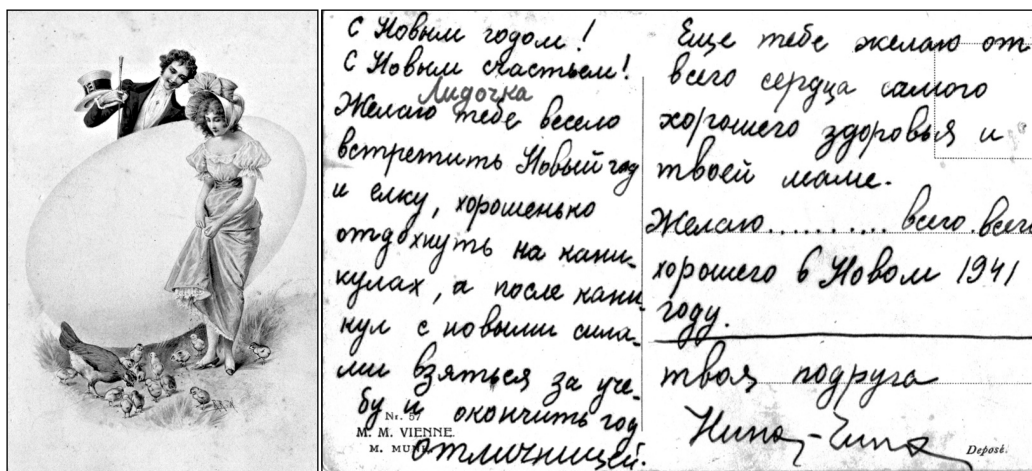 С Новым годом!
С Новым счастьем!
Лидочка
Желаю тебе весело
встретить Новый год
и елку, хорошенько
отдохнуть на кани-
кулах, а после кани-
кул с новыми сила-
ми взяться за уче-
бу и окончить год
отличницей.
Nr. 57
M. M. VIENNE.
M. MUNK
Еще тебе желаю от
всего сердца самого
хорошего здоровья и
твоей маме.
Желаю........... всего всего
хорошего в Новом 1941
году.
твоя подруга
Нина
Deposé.